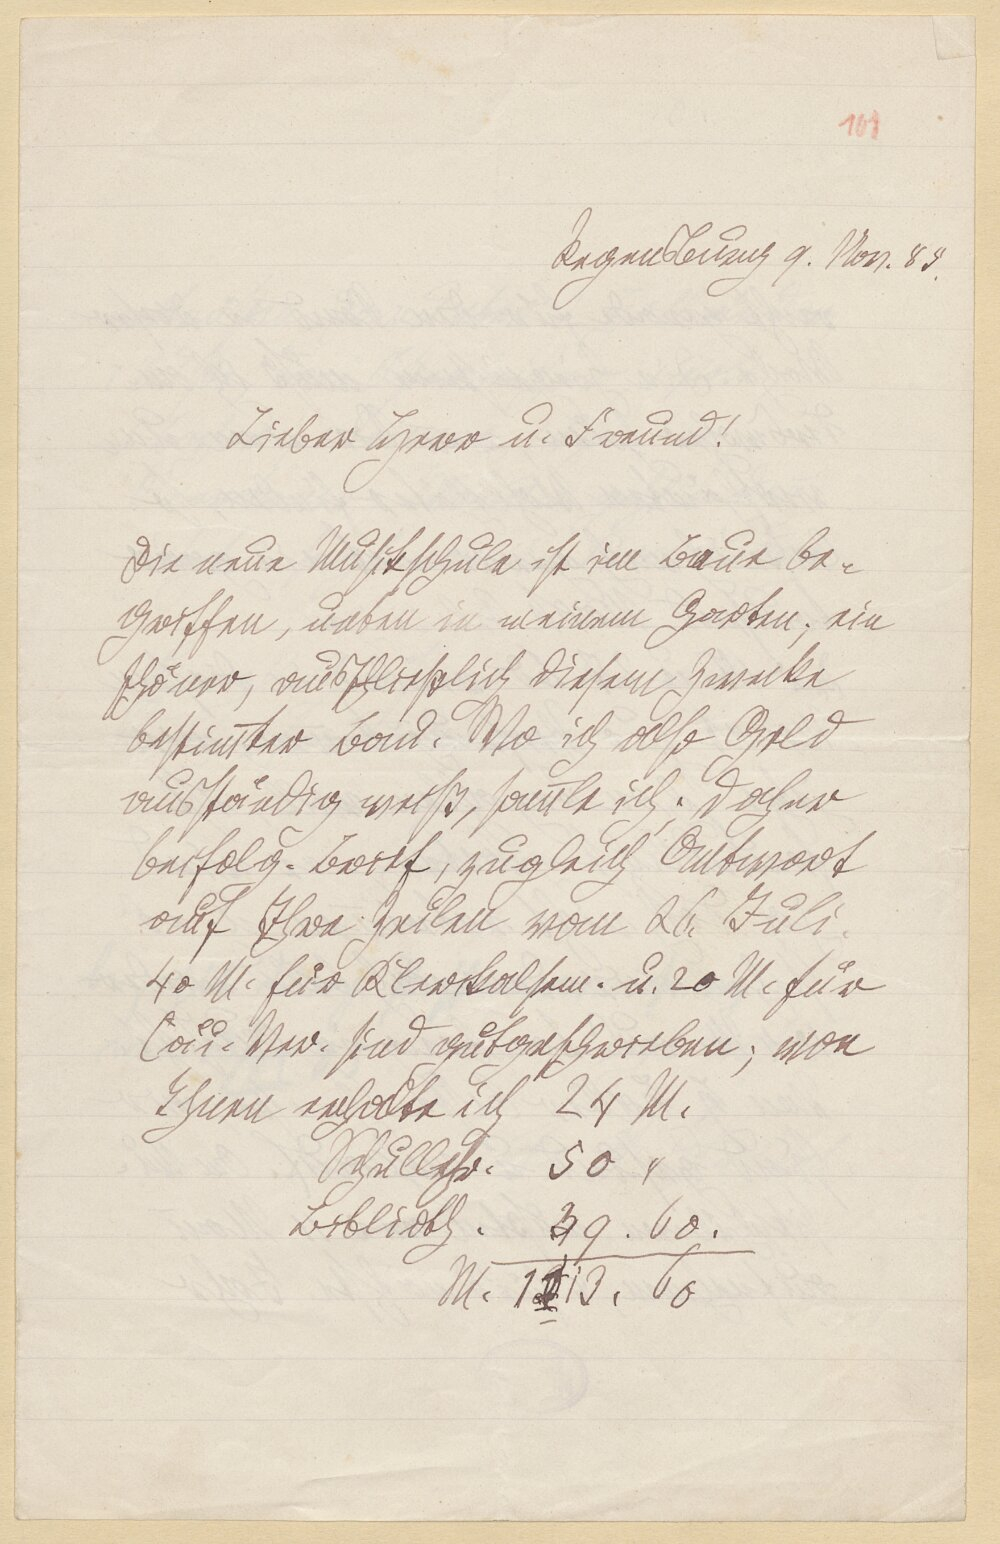 101
Regensburg 9. Nov. 88.
Lieber Herr u. Freund!
Die neue Musikschule ist im Baue be-
griffen, neben in meinem Garten; ein
schöner, ausschließlich diesem Zwecke
bestimmter Bau. Wo ich also Geld
ausständig weiß, samle ich. Daher
beifolg. Brief, zugleich Antwort
auf Ihre Zeilen vom 26. Juli.
40 M. für Klerikalsem. u. 20 M. für
Cäc. Ver. sind gutgeschrieben; von
Ihnen erhalte ich 24 M.
Schullehr. 50 "
Biblioth. 39. 60.
M. 113. 60